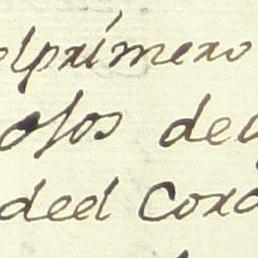 olprimero
olos del
deel Coro